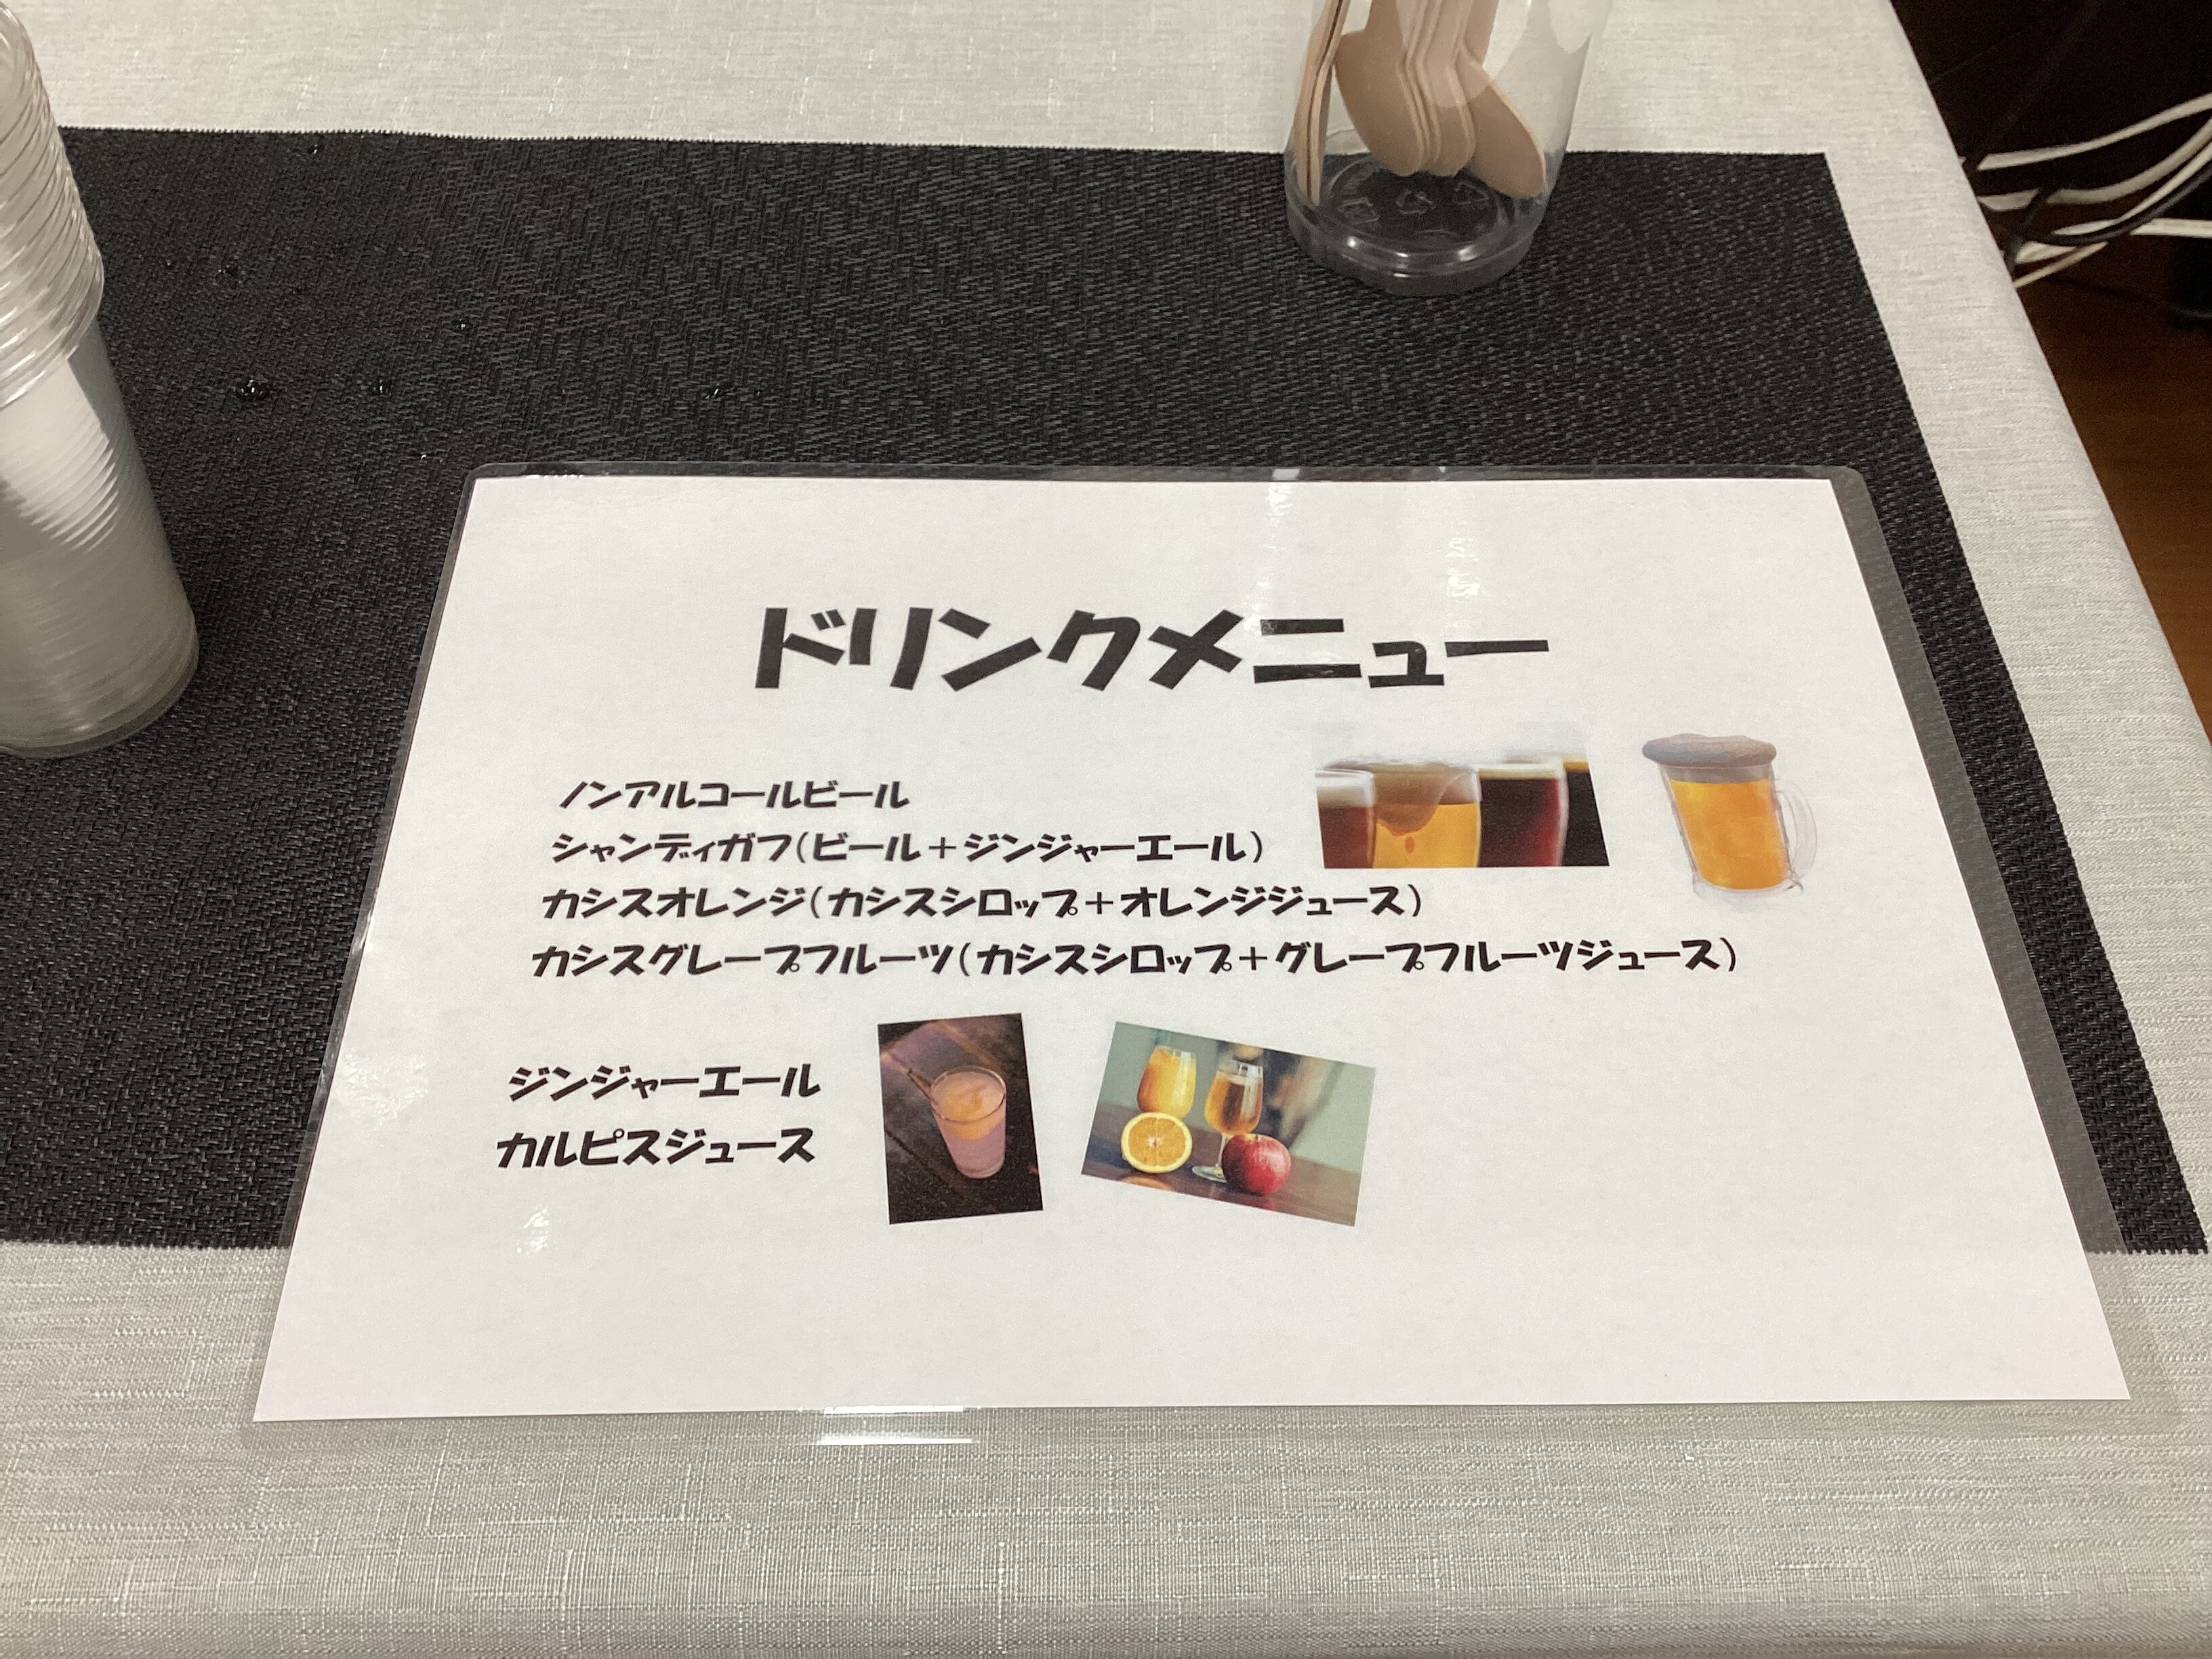 ドリンクメニュー
ノンアルコールビール
シャンディガフ(ビール+ジンジャーエール)
カシスオレンジ(カシスシロップ+オレンジジュース)
カシスグレープフルーツ(カシスシロップ+グレープフルーツジュース)
ジンジャーエール
カルピスジュース